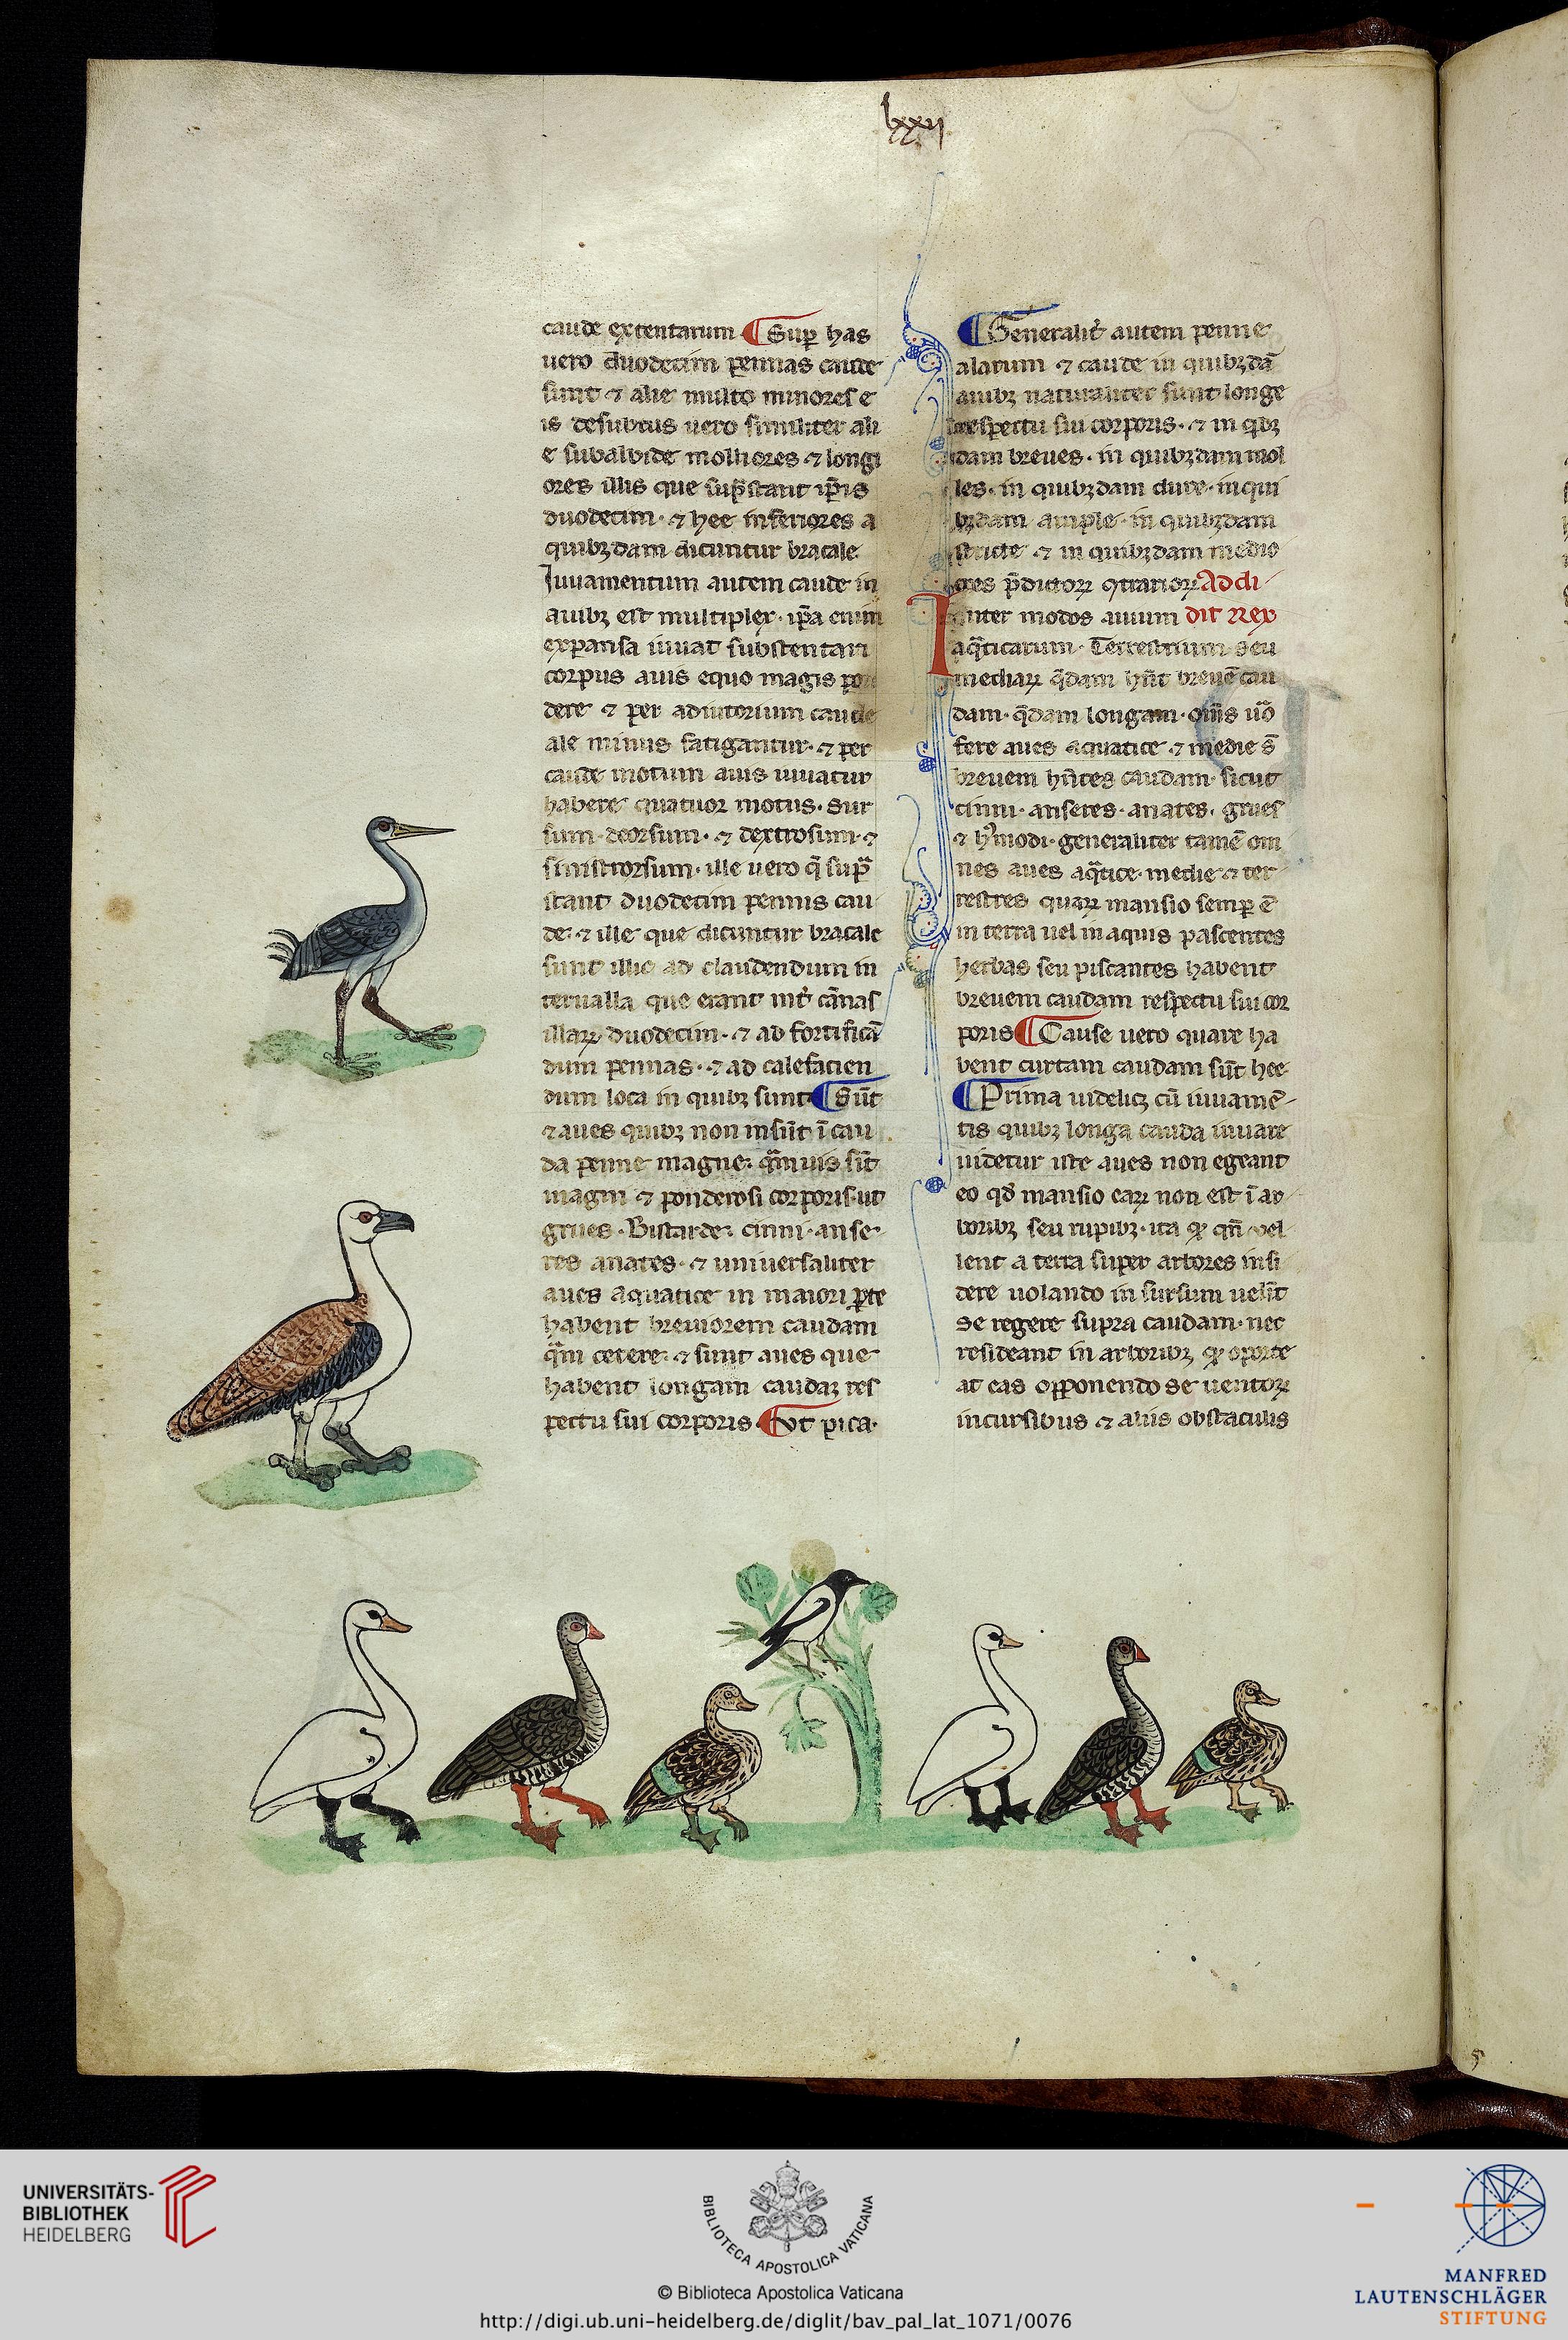 lxxij
caude extentarum ¶ Sup̱ has
uero duodecim pennas caude
sunt ⁊ alie multo minores e
is desubtus uero similiter ali
e subalbide molliores ⁊ longi
ores illis que sup̃stant ip̃is
duodecim· ⁊ hee inferiores a
quibꝫdam dicuntur bracale
Iuuamentum autem caude in
auibꝫ est multiplex· ip̃a enim
expansa iuuat substentari
corpus auis equo magis pon
dere ⁊ per adiutorium caude
ale minus fatigantur· ⁊ per
caude motum auis iuuatur
habere quatuor motus· sur
sum· deorsum· ⁊ dextrosum· ⁊
sinistrorsum· ille uero q̃ sup̃
stant duodecim pennis cau
de· ⁊ ille que dicuntur bracale
sunt illic ad claudendum in
terualla que erant int̉ cãnas
illaꝝ duodecim· ⁊ ad fortificã
dum pennas· ⁊ ad calefacien
dum loca in quibꝫ sunt ¶ Sũt
⁊ aues quibꝫ non insũt ĩ cau
da penne magne· q̃muis sĩt
magni ⁊ ponderosi corporis· ut
grues· Bistarde· cinni· anse
res anates· ⁊ uniuersaliter
aues aquatice in maiori ꝑte
habent breuiorem caudam
q̃m cetere· ⁊ sunt aues que
habent longam caudaꝫ res
pectu sui corporis ¶ Vt pica·
¶ Generalit̉ autem penne
alarum ⁊ caude in quibꝫdã
auibꝫ naturaliter sunt longe
respectu sui corporis· ⁊ in qbꝫ
dam breues· in quibꝫdam mol
les· in quibꝫdam dure· in qui
bꝫdam ample· in quibꝫdam
stricte ⁊ in quibꝫdam medio
cres p̃dictoꝝ ꝯtrarioꝝ Addi
Inter modos auium dit Rex
aq̃ticarum· Terrestrium seu
mediaꝝ q̃dam hñt breuẽ cau
dam· q̃dam longam· om̃s uõ
fere aues aquatice ⁊ medie s̃
breuem hñtes caudam· sicut
cinni· anseres· anates· grues
⁊ hͥmodi· generaliter tamẽ om
nes aues aq̃tice· medie ⁊ ter
restres quaꝝ mansio semꝑ ẽ
in terra uel in aquis pascentes
herbas seu piscantes habent
breuem caudam respectu sui cor
poris ¶ Cause uero quare ha
bent curtam caudam sũt hee
¶ Prima uidelicꝫ cũ iuuamẽ
tis quibꝫ longa cauda iuuare
uidetur iste aues non egeant
eo qđ mansio eaꝝ non est ĩ ar
boribꝫ seu rupibꝫ· ita ꝙ qñ uel
lent a terra super arbores insi
dere uolando in sursum uelĩt
se regere supra caudam· nec
resideant in arboribꝫ ꝙ oporte
at eas opponendo se uentoꝝ
incursibus ⁊ aliis obstaculis
UNIVERSITÄTS-
BIBLIOTHEK
HEIDELBERG
BIBLIOTECA APOSTOLICA VATICANA
© Biblioteca Apostolica Vaticana
http://digi.ub.uni-heidelberg.de/diglit/bav_pal_lat_1071/0076
MANFRED
LAUTENSCHLÄGER
STIFTUNG